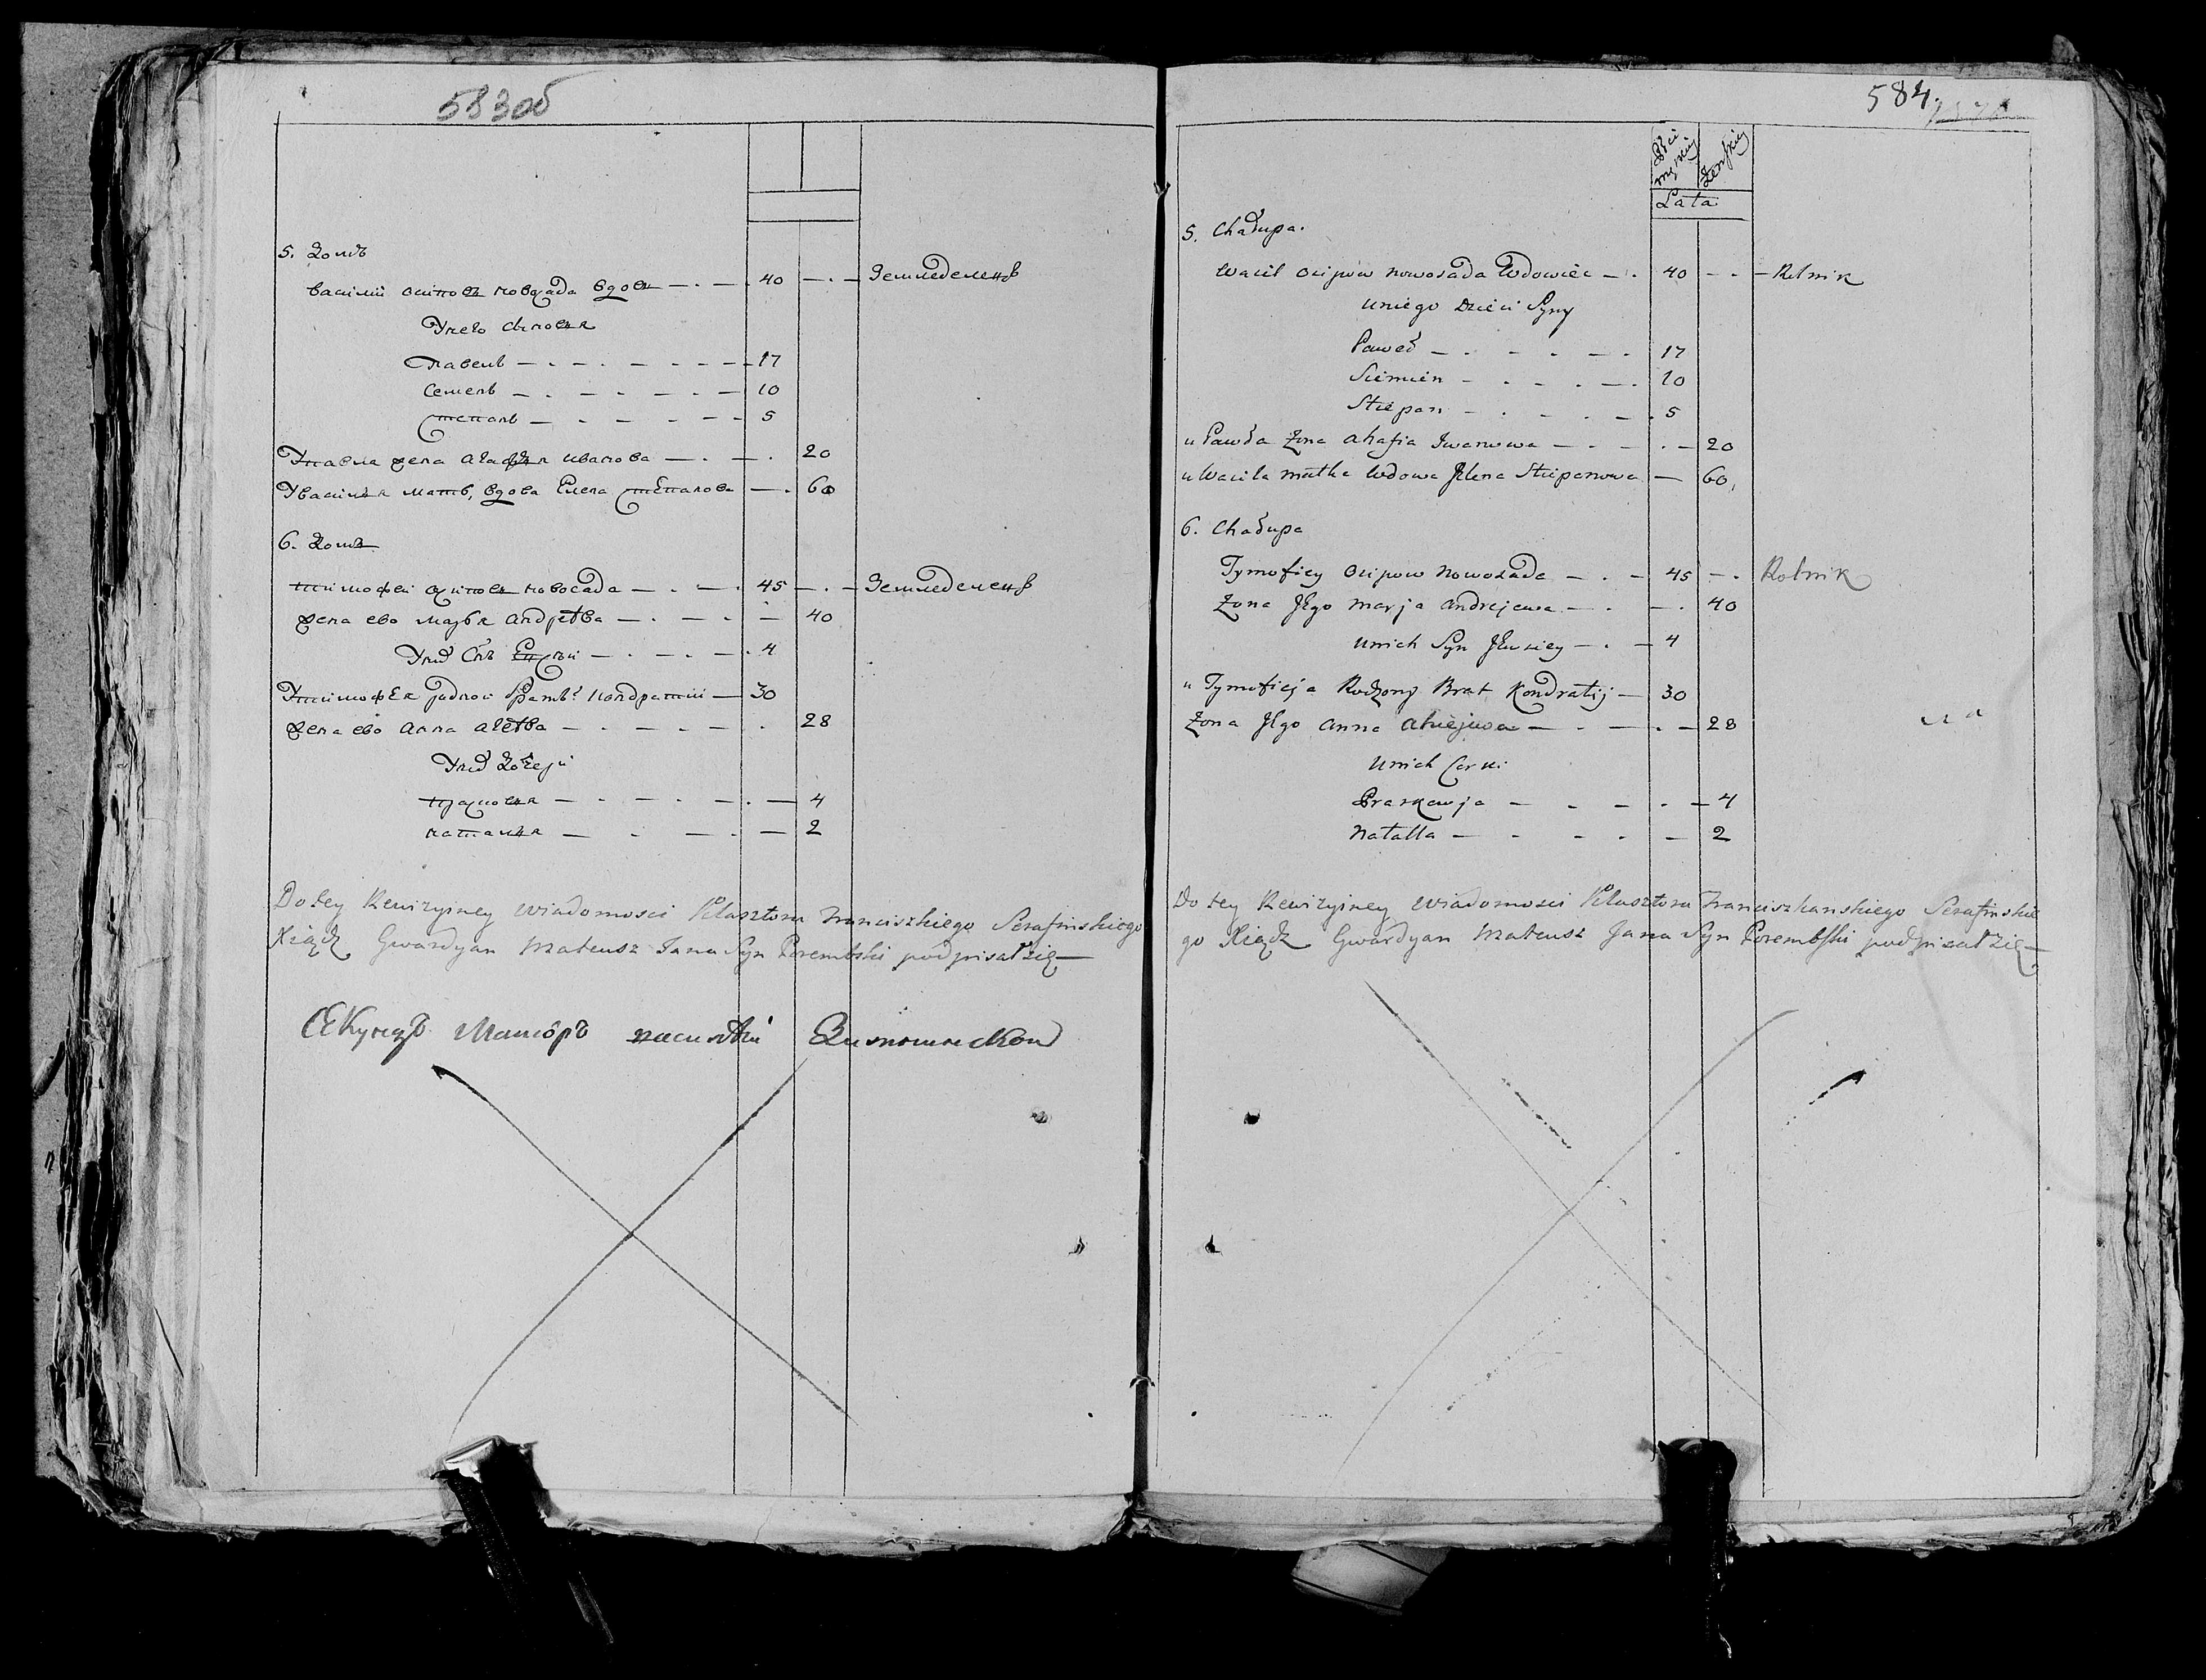 583об
5. Домъ
Василий Осиповъ Новосада вдовъ — 40 — Земледелецъ
У него сыновья
Павелъ — 17
Семенъ — 10
Степанъ — 5
У Павла жена Агафья Иванова — 20
У Василья мать, вдова Елена Степанова — 60
6. Домъ
Тимофей Осиповъ Новосада — 45 — Земледелецъ
жена ево Марья Андрѣева — 40
У них Снъ — 4
У Тимофея родной братъ Кондратий — 30
жена ево Анна — 28
У них дочери
Прасковья — 4
Наталья — 2
Do tey Rewizyiney wiadomosci Klasztoru Franciszkiego Serafinskiego
Xiądz Gwardyan Mateusz Jana Syn Porembski podpisał się
Секундъ Маиоръ
584.
Płci męskiey Żenskiey
Lata
5. Chałupa.
Wacil Osipow Nowosada Wdowiec — 40 — Rolnik
U niego Dzieci Syny
Paweł — 17
Siemien — 10
Stiepan — 5
u Pawła Żona Ahafia Iwanowa — 20
u Wacila matka Wdowa Jelena Stiepanowa — 60
6. Chałupa
Tymofiey Osipow Nowosada — 45 — Rolnik
Żona Jego Marja Andrejewa — 40
U nich Syn — 4
u Tymofieja Rodzony Brat Kondratij — 30
Żona Jego Anna — 28
U nich Corki
Praskewja — 4
Natalla — 2
Do tey Rewizyiney wiadomosci Klasztoru Franciszkanskiego Serafinskie
go Xiądz Gwardyan Mateusz Jana Syn Porembski podpisał się